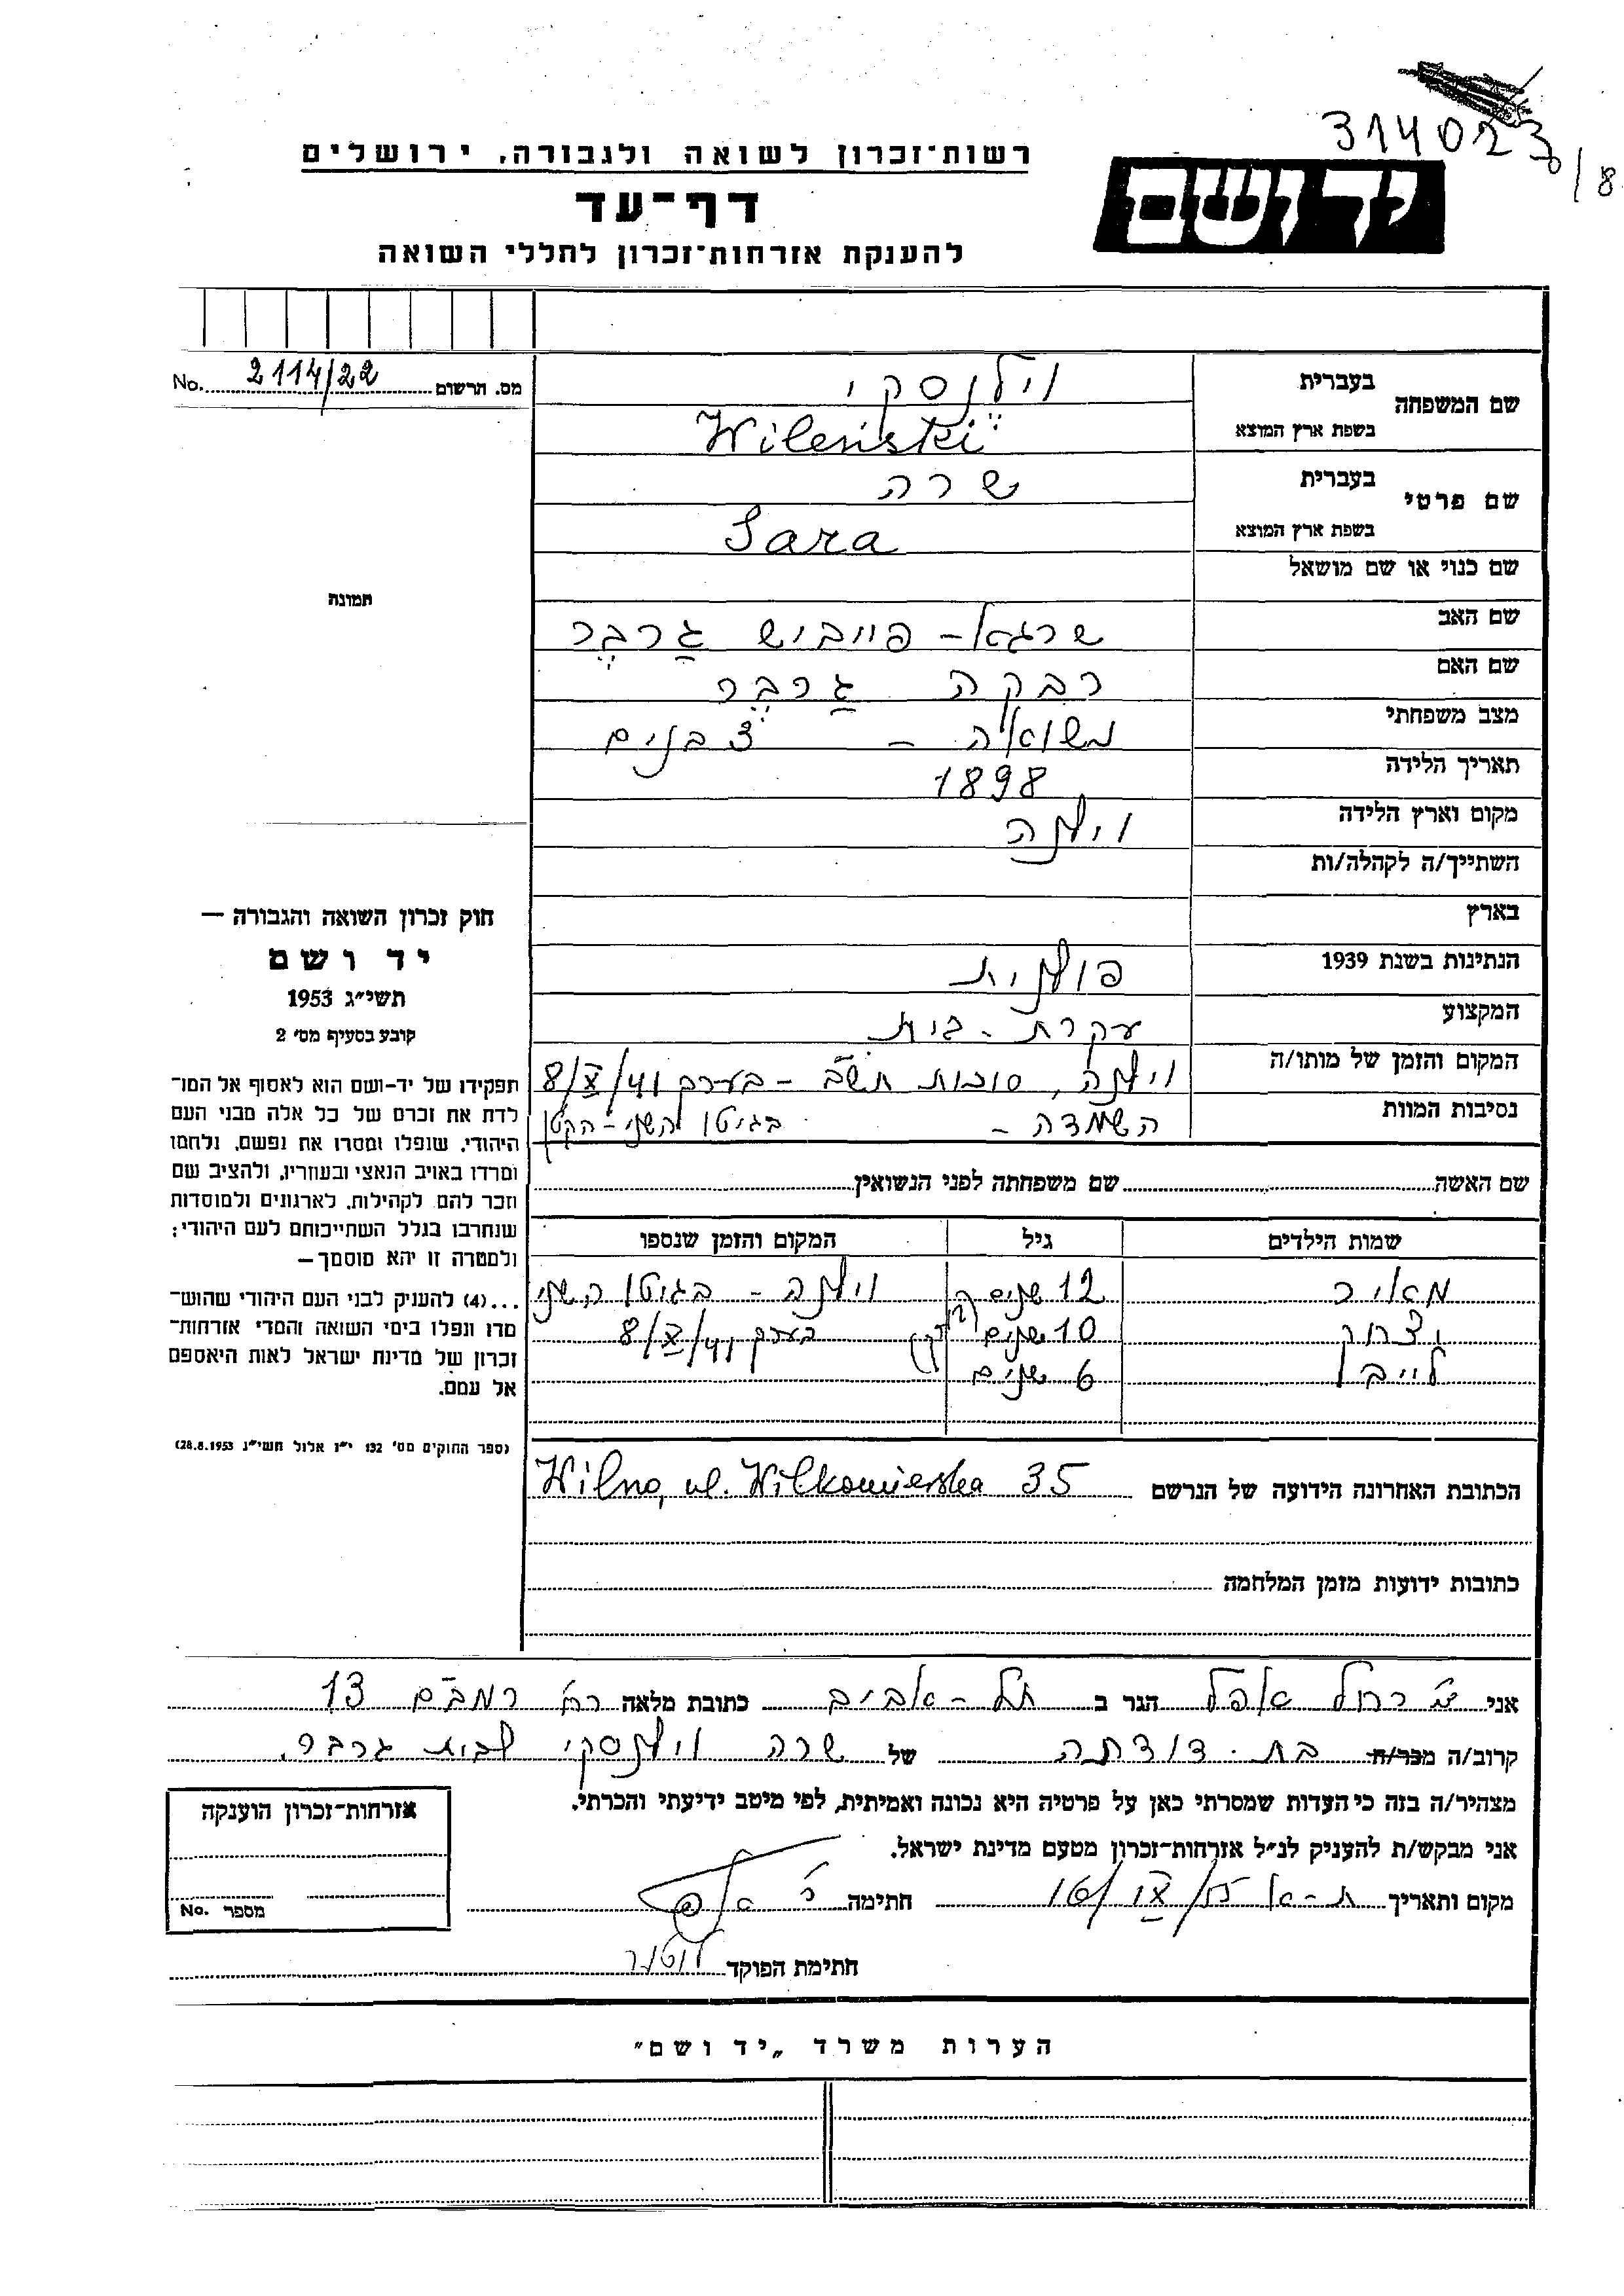 314023/8
רשות־זכרון לשואה ולגבורה, ירושלים
יד ושם
דף־עד
להענקת אזרחות־זכרון לחללי השואה
No. 2114/22 מס. הרשום
שם המשפחה בעברית וילנסקי
בשפת ארץ המוצא Wileński
שם פרטי בעברית שרה
בשפת ארץ המוצא Sara
שם כנוי או שם מושאל
תמונה
שם האב שרגא - פייביש גַרבֶּר
שם האם רבקה גַרבֶּר
מצב משפחתי נשואה - 3 בנים
תאריך הלידה 1898
מקום וארץ הלידה וילנה
השתייך/ה לקהלה/ות
בארץ
הנתינות בשנת 1939 פולנית
המקצוע עקרת - בית
המקום והזמן של מותו/ה וילנה, סוכות תש"ב - בערב 8/X/41
נסיבות המוות השמדה - בגיטו השני - הקטן
חוק זכרון השואה והגבורה —
יד ושם
תשי״ג 1953
קובע בסעיף מס׳ 2
תפקידו של יד-ושם הוא לאסוף אל המו־
לדת את זכרם של כל אלה מבני העם
היהודי, שנפלו ומסרו את נפשם, נלחמו
ומרדו באויב הנאצי ובעוזריו, ולהציב שם
וזכר להם לקהילות, לארגונים ולמוסדות
שנחרבו בגלל השתייכותם לעם היהודי;
ולמטרה זו יהא מוסמך —
...(4) להעניק לבני העם היהודי שהוש־
מדו ונפלו בימי השואה והמרי אזרחות־
זכרון של מדינת ישראל לאות היאספם
אל עמם.
(ספר החוקים מס׳ 132 י״ז אלול תשי״ג 28.8.1953)
שם האשה שם משפחתה לפני הנשואין
שמות הילדים גיל המקום והזמן שנספו
מאיר 12 שנים וילנה - בגיטו השני
10 שנים בערב 8/X/41
לייבל 6 שנים
הכתובת האחרונה הידועה של הנרשם Wilno, ul. Wilkomierska 35
כתובות ידועות מזמן המלחמה
אני רחל אפל הגר ב תל - אביב כתובת מלאה רח' רמב"ם 13
קרוב/ה מכר/ה בת. דודתה של שרה וילנסקי לבית גרבר.
מצהיר/ה בזה כי העדות שמסרתי כאן על פרטיה היא נכונה ואמיתית, לפי מיטב ידיעתי והכרתי.
אני מבקש/ת להעניק לנ״ל אזרחות־זכרון מטעם מדינת ישראל.
מקום ותאריך ת-א חתימה ר' אפל
חתימת הפוקד
אזרחות־זכרון הוענקה
No. מספר
הערות משרד „יד ושם״